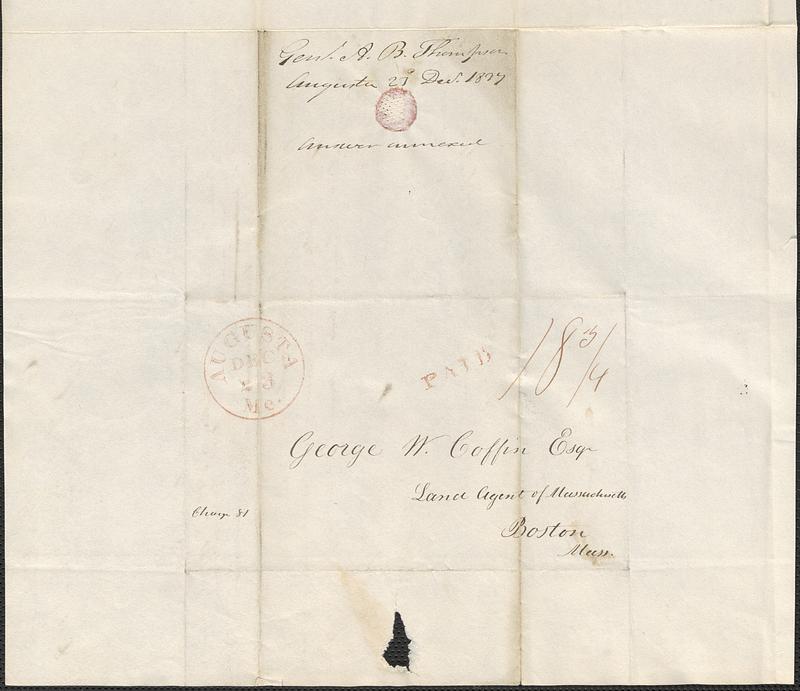 Genl. A. B. Thompson
Augusta 23 Dec. 1837
Answer annexed
AUGUSTA
DEC
23
Me.
PAID
18 3/4
George W. Coffin Esqr
Land Agent of Massachusetts
Boston
Mass.
Charge 81